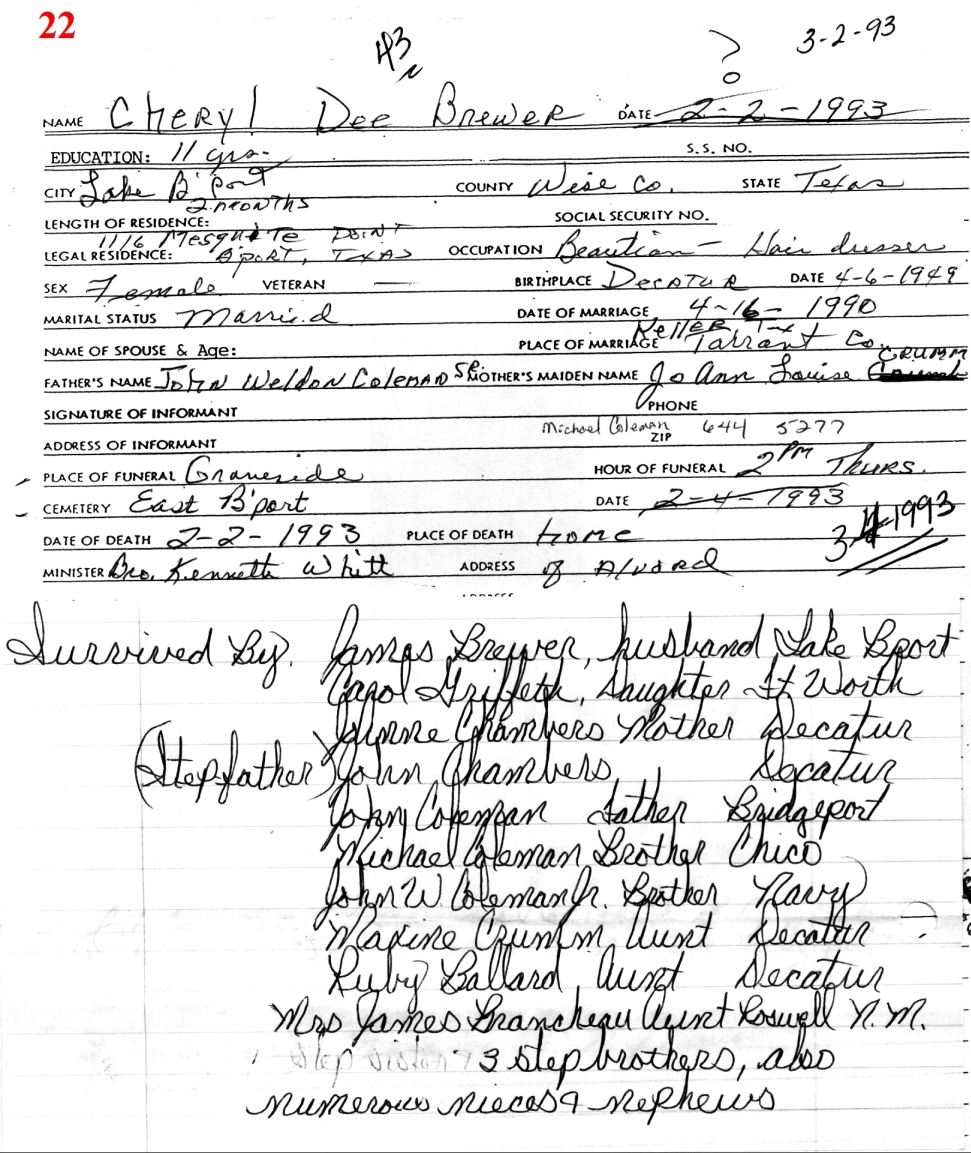 22
43
?
3-2-93
NAME Cheryl Dee Brewer DATE 2-2-1993
EDUCATION: 11 yrs. S.S. NO.
CITY Lake B'port COUNTY Wise Co. STATE Texas
2 months
LENGTH OF RESIDENCE: SOCIAL SECURITY NO.
1116 Mesquite Point
LEGAL RESIDENCE: B'port, Texas OCCUPATION Beautian - Hair dresser
SEX Female VETERAN — BIRTHPLACE Decatur DATE 4-6-1949
MARITAL STATUS Married DATE OF MARRIAGE 4-16-1990
Keller Tx
NAME OF SPOUSE & Age: PLACE OF MARRIAGE Tarrant Co.
CRUMM
FATHER'S NAME John Weldon Coleman SR MOTHER'S MAIDEN NAME Jo Ann Louise
SIGNATURE OF INFORMANT PHONE
Michael Coleman 644 5277
ADDRESS OF INFORMANT ZIP
PLACE OF FUNERAL Graveside HOUR OF FUNERAL 2 PM Thurs.
CEMETERY East B'port DATE 2-4-1993
DATE OF DEATH 2-2-1993 PLACE OF DEATH Home 3-4-1993
MINISTER Bro. Kenneth Whitt ADDRESS of Alvord
Survived By. James Brewer, husband Lake Bport
Carol Griffeth, Daughter Ft Worth
Chambers Mother Decatur
(Stepfather) John Chambers, " Decatur
John Coleman Father Bridgeport
Michael Coleman Brother Chico
John W Coleman Jr. Brother Navy
Maxine Crumm, Aunt Decatur
Ruby Ballard, Aunt Decatur
Mrs James Brancheau Aunt Roswell N.M.
Step sister 3 step brothers, also
numerous nieces & nephews